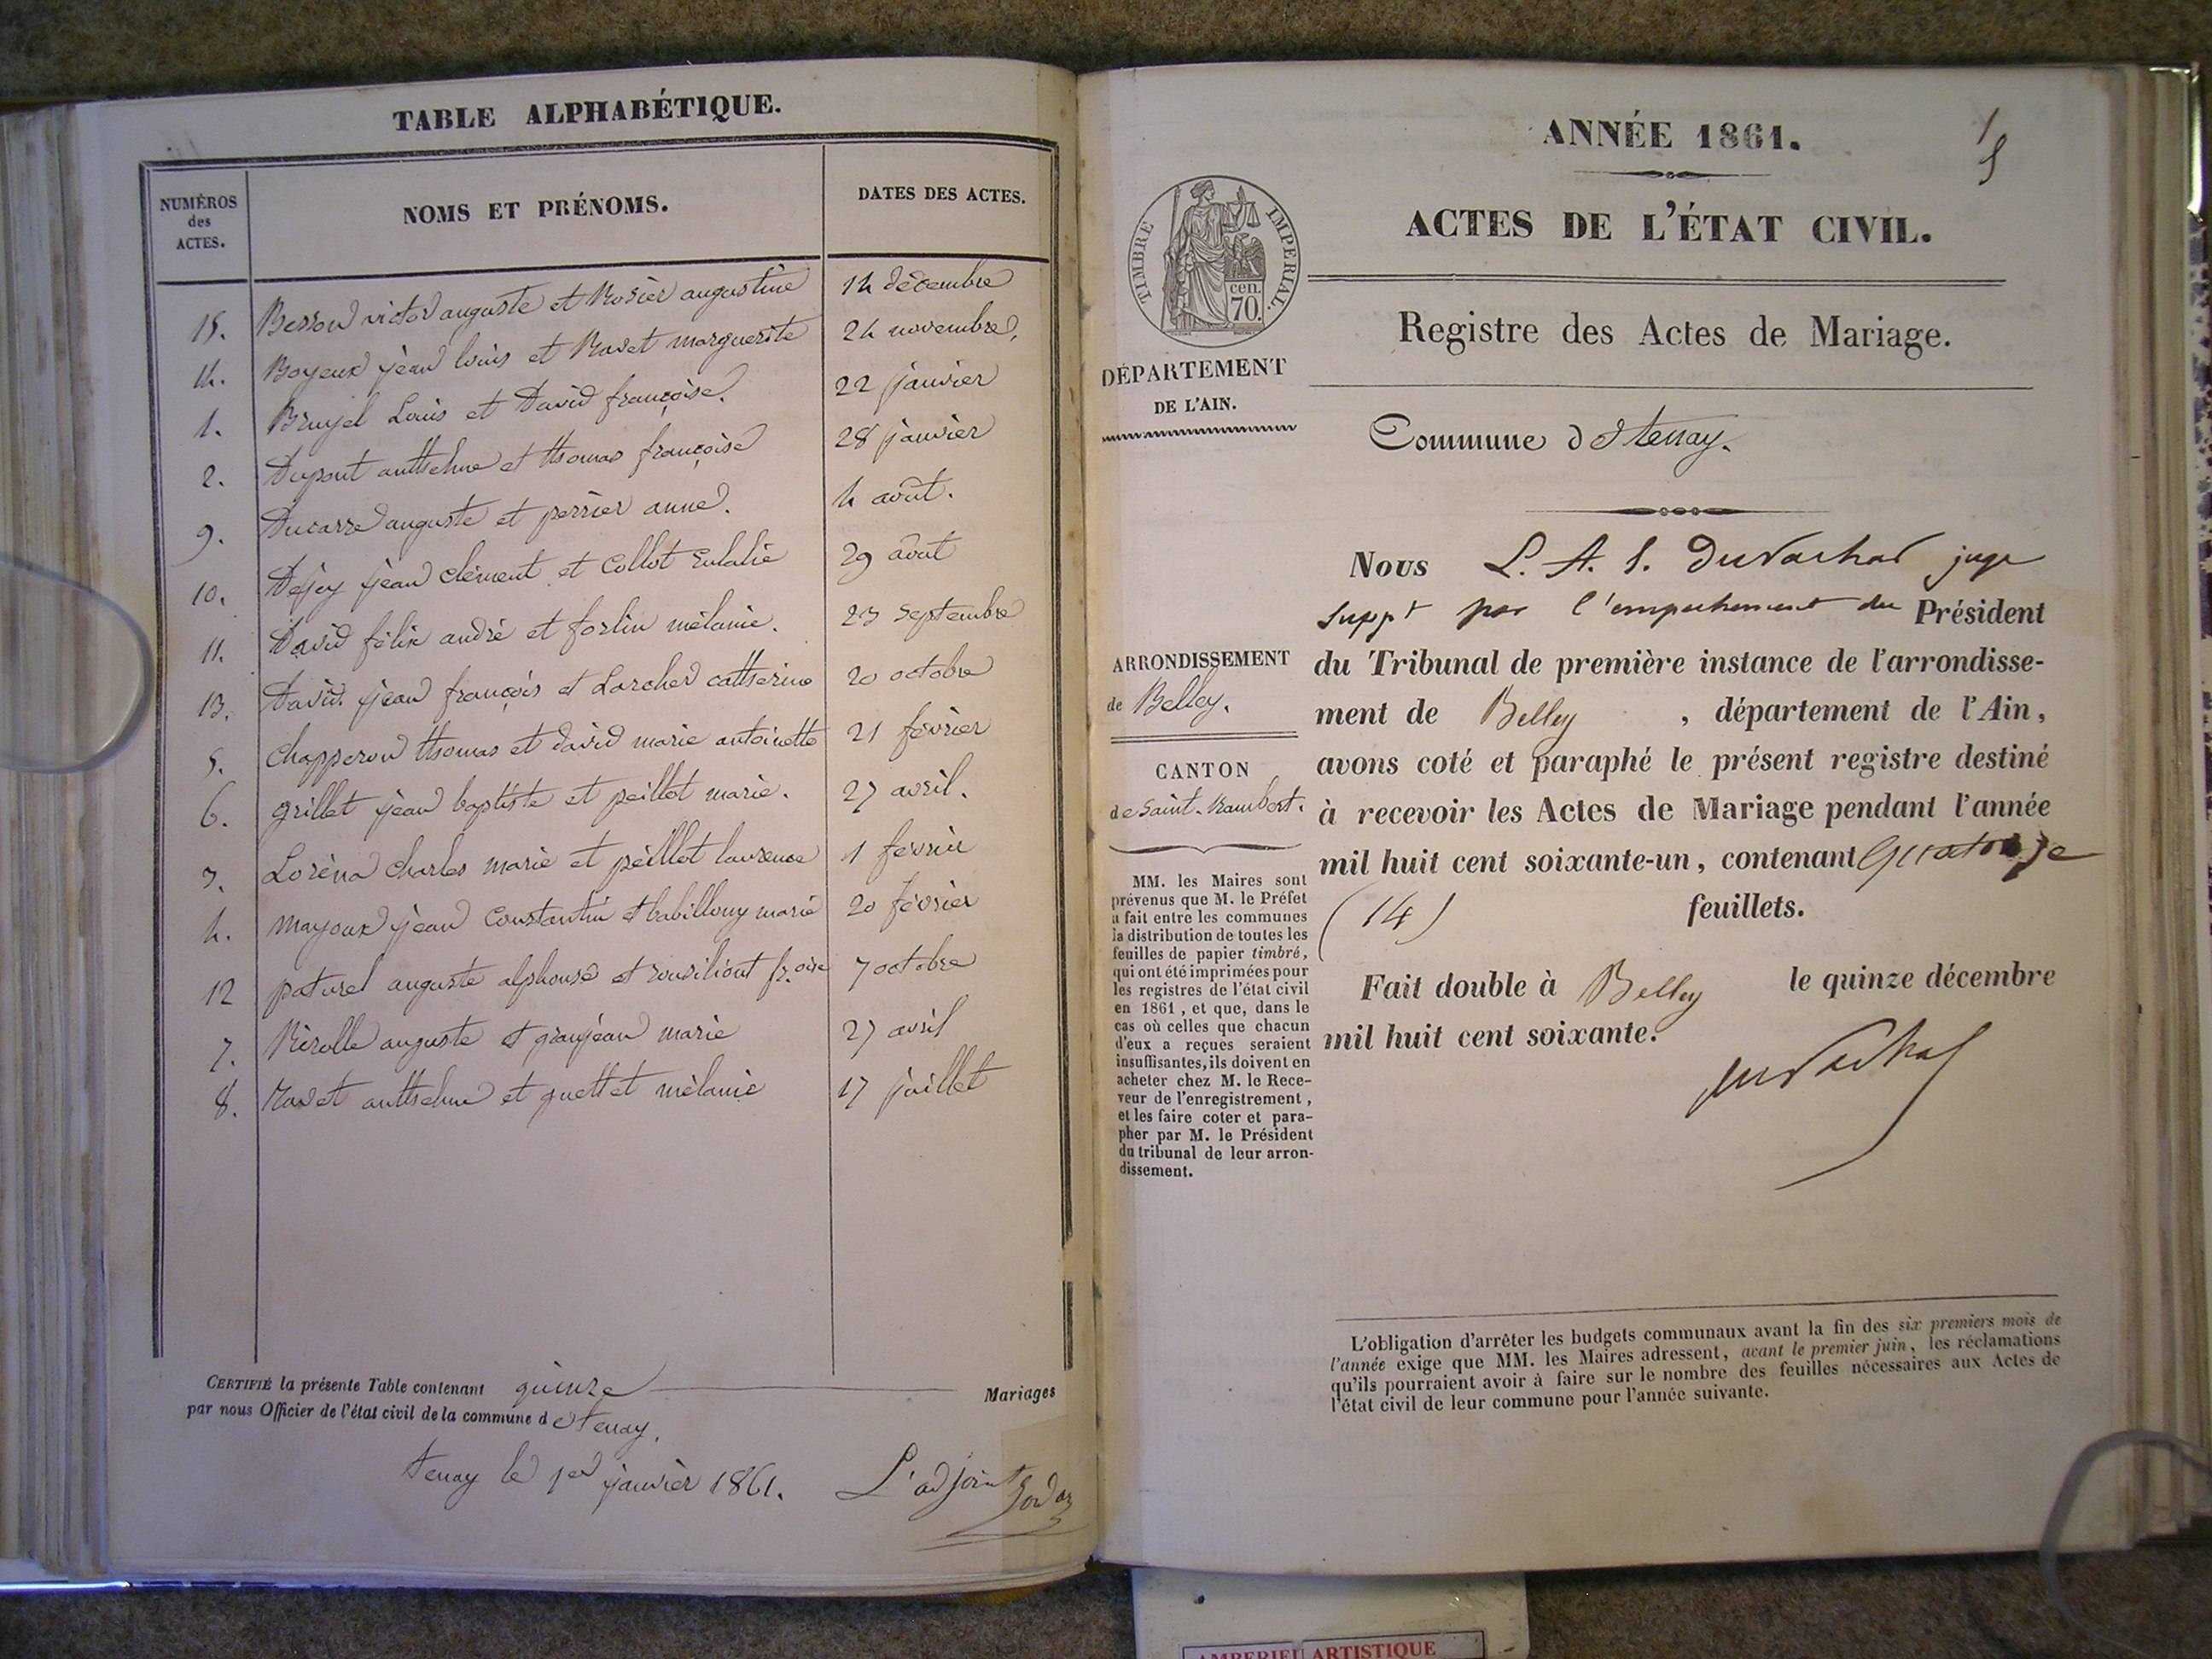 TABLE ALPHABÉTIQUE.
NUMÉROS des ACTES. NOMS ET PRÉNOMS. DATES DES ACTES.
15. Besson victor auguste et Rosier augustine 14 décembre
14. Boyeux jean louis et Ravet marguerite 24 novembre.
1. Bruyel Louis et David françoise. 22 janvier
2. Dupont anthelme et thomas françoise 28 janvier
9. Ducarre auguste et perrier anne. 4 août.
10. jean clément et Collot Eulalie 29 août
11. David félix andré et forlin mélanie. 23 septembre
13. David jean françois et Larcher catherine 20 octobre
5. Chapperon thomas et david marie antoinette 21 février
6. grillet jean baptiste et peillot marie. 27 avril.
3. Loréna charles marie et peillot laurence 1 février
4. mayoux jean Constantin et babillony marie 20 février
12 paturel auguste alphonse et froise 7 octobre
7. Rérolle auguste et granjean marie 27 avril
8. Ravet anthelme et guettet mélanie 17 juillet
CERTIFIÉ la présente Table contenant quinze Mariages
par nous Officier de l'état civil de la commune de tenay.
tenay le 1er janvier 1861. L'adjoint
ANNÉE 1861.
ACTES DE L'ÉTAT CIVIL.
Registre des Actes de Mariage.
TIMBRE IMPERIAL.
cen.
70.
DÉPARTEMENT
DE L'AIN.
Commune de tenay.
ARRONDISSEMENT
de Belley.
CANTON
de Saint-Rambert.
MM. les Maires sont
prévenus que M. le Préfet
a fait entre les communes
la distribution de toutes les
feuilles de papier timbré,
qui ont été imprimées pour
les registres de l'état civil
en 1861, et que, dans le
cas où celles que chacun
d'eux a reçues seraient
insuffisantes, ils doivent en
acheter chez M. le Rece-
veur de l'enregistrement,
et les faire coter et para-
pher par M. le Président
du tribunal de leur arron-
dissement.
Nous L. A. S. Duvachat juge
suppt par l'empechement du Président
du Tribunal de première instance de l'arrondisse-
ment de Belley , département de l'Ain,
avons coté et paraphé le présent registre destiné
à recevoir les Actes de Mariage pendant l'année
mil huit cent soixante-un, contenant Quatorze
(14) feuillets.
Fait double à Belley le quinze décembre
mil huit cent soixante.
Duvachat
L'obligation d'arrêter les budgets communaux avant la fin des six premiers mois de
l'année exige que MM. les Maires adressent, avant le premier juin, les réclamations
qu'ils pourraient avoir à faire sur le nombre des feuilles nécessaires aux Actes de
l'état civil de leur commune pour l'année suivante.
AMBERIEU ARTISTIQUE